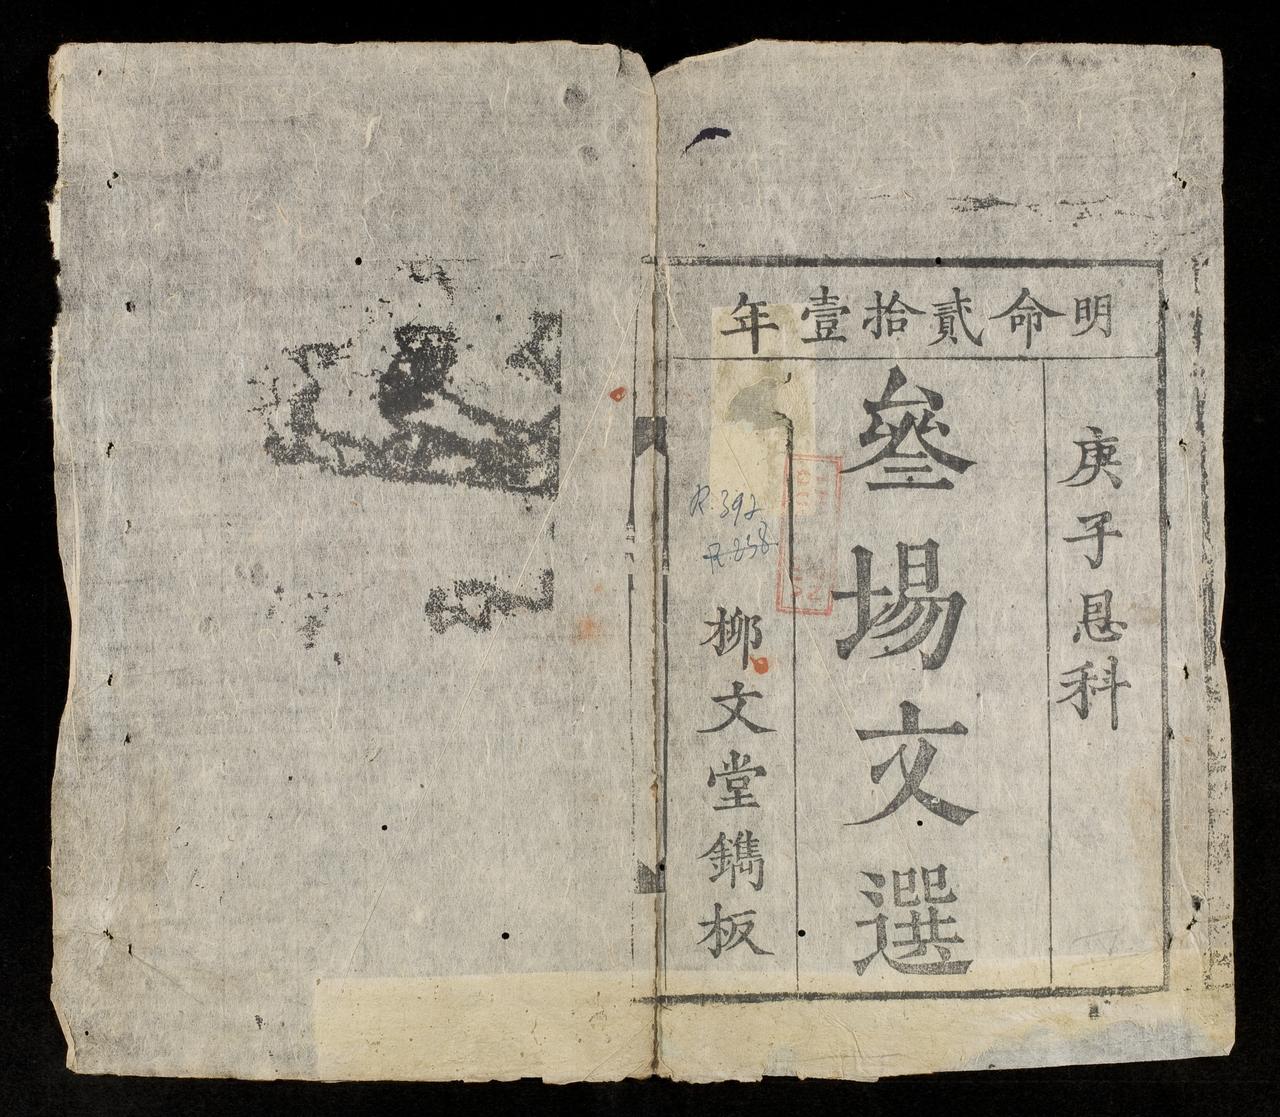 明命貳拾壹年
庚子恩科
叄場文選
柳文堂鐫板
R.392
R.238